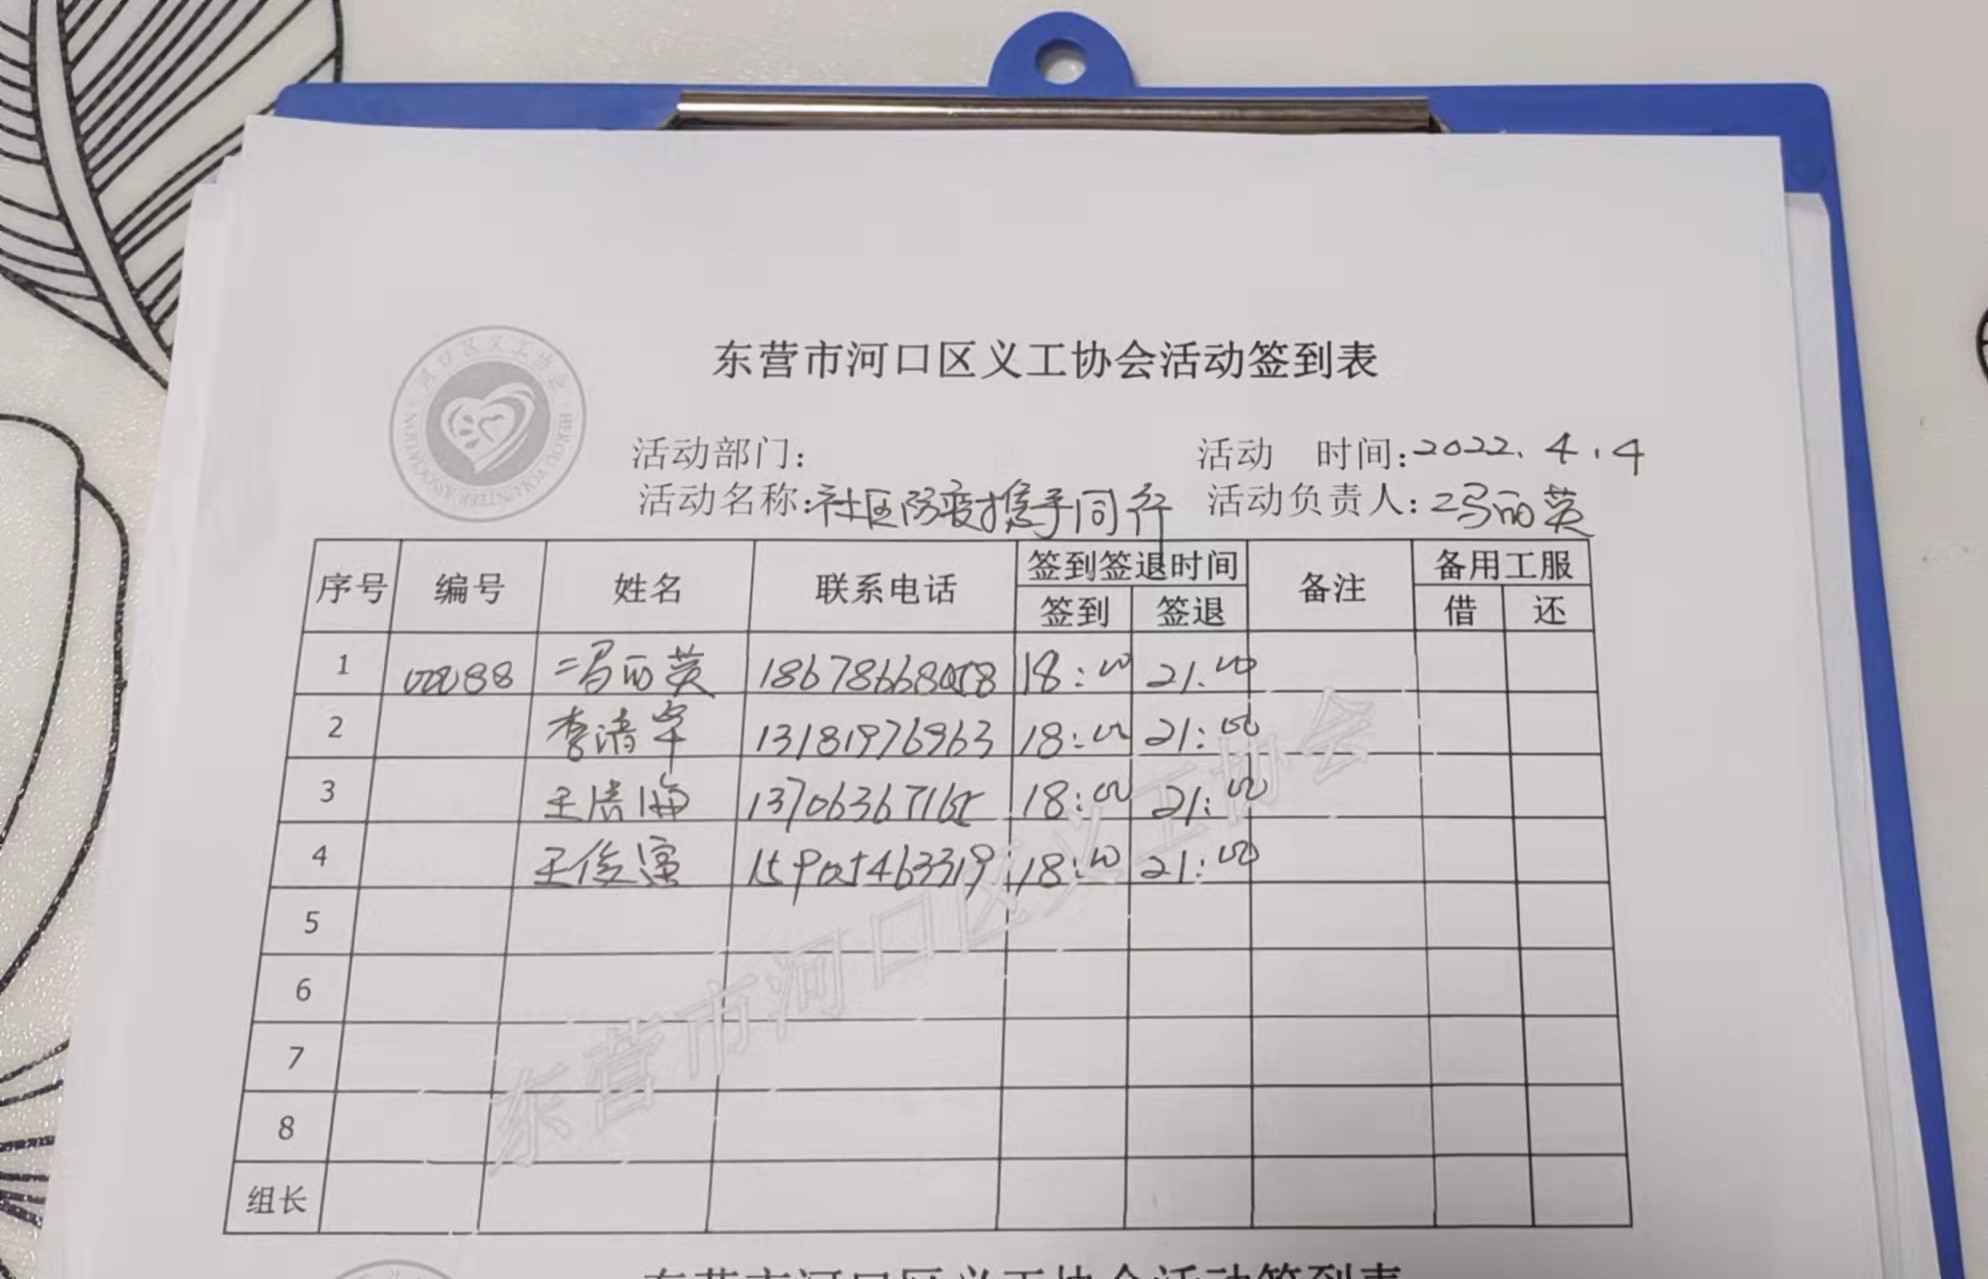 东营市河口区义工协会活动签到表
河口区义工协会
HEKOU VOLUNTEER ASSOCIATION
活动部门: 活动 时间:2022.4.4
活动名称:社区防疫携手同行 活动负责人:冯丽英
序号 编号 姓名 联系电话 签到签退时间 备注 备用工服
签到 签退 借 还
1 冯丽英 18:00 21:00
2 李清军 13181976963 18:00 21:00
3 王洪海 18:00 21:00
4 15905463319 18:00 21:00
5
6
7
8
组长
东营市河口区义工协会
东营市河口区义工协会活动签到表